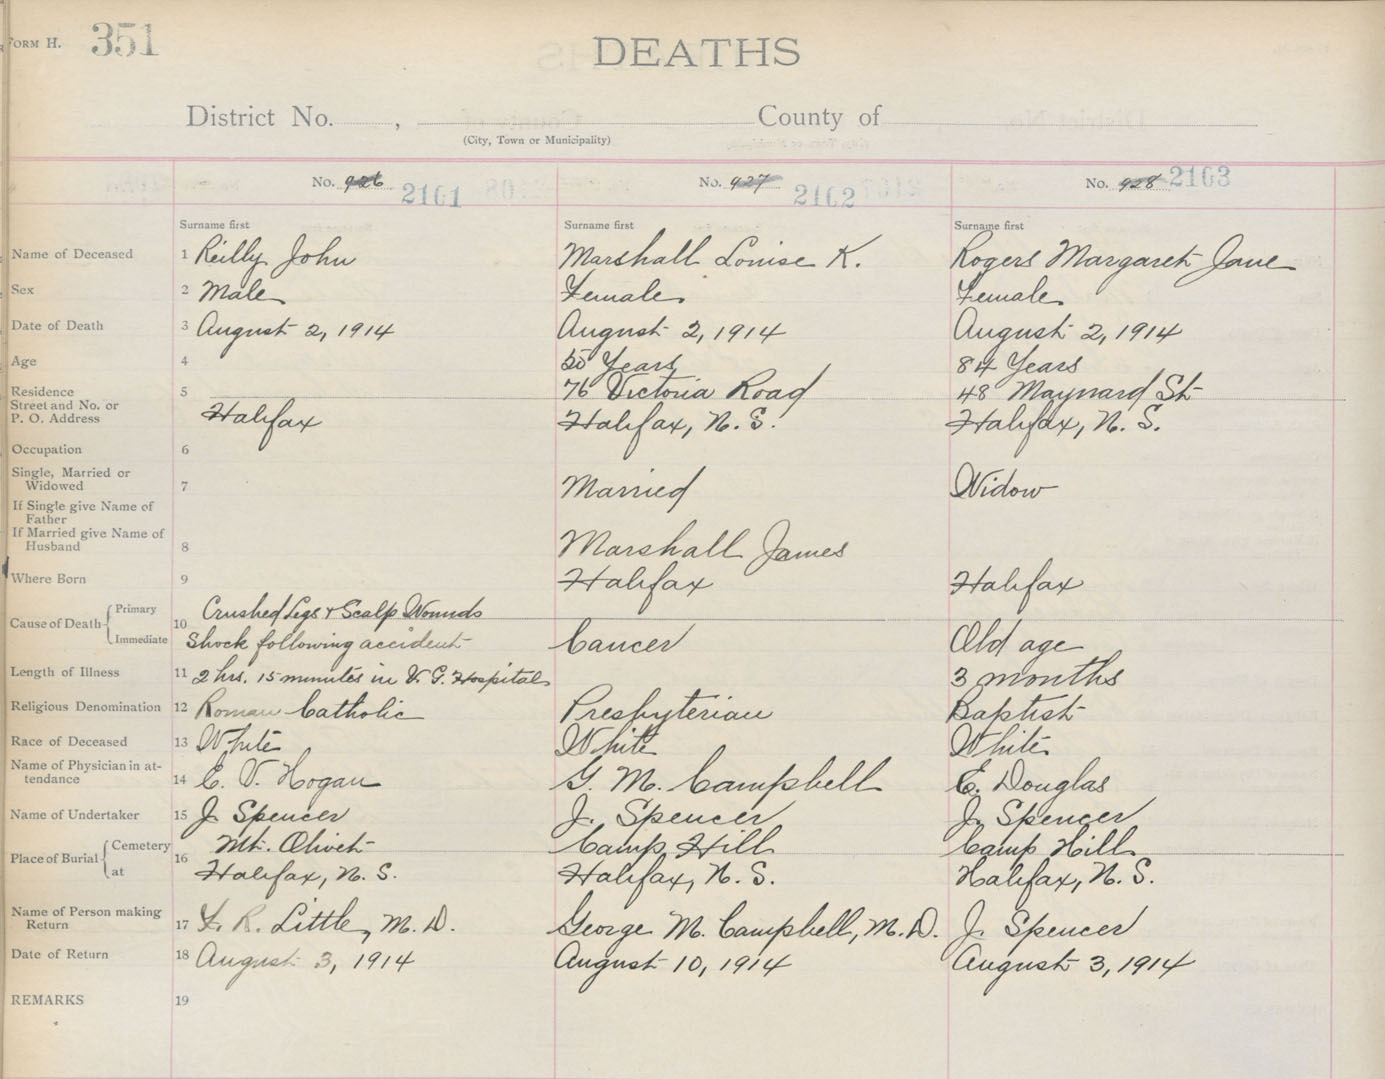 FORM H. 351
DEATHS
District No. , County of
(City, Town or Municipality)
No. 926 2161 No. 927 2162 No. 928 2163
Surname first Surname first Surname first
Name of Deceased 1 Reilly John Marshall Louise K. Rogers Margaret Jane
Sex 2 Male Female Female
Date of Death 3 August 2, 1914 August 2, 1914 August 2, 1914
Age 4 50 Years 84 Years
Residence 5 76 Victoria Road 48 Maynard St
Street and No. or
P. O. Address Halifax Halifax, N. S. Halifax, N. S.
Occupation 6
Single, Married or
Widowed 7 Married Widow
If Single give Name of
Father
If Married give Name of
Husband 8 Marshall James
Where Born 9 Halifax Halifax
Primary Crushed Legs & Scalp Wounds
Cause of Death 10
Immediate Shock following accident Cancer Old age
Length of Illness 11 2 hrs. 15 minutes in V. G. Hospital 3 months
Religious Denomination 12 Roman Catholic Presbyterian Baptist
Race of Deceased 13 White White White
Name of Physician in at-
tendance 14 E. V. Hogan G. M. Campbell E. Douglas
Name of Undertaker 15 J. Spencer J. Spencer J. Spencer
Cemetery Mt. Olivet Camp Hill Camp Hill
Place of Burial 16
at Halifax, N. S. Halifax, N. S. Halifax, N. S.
Name of Person making
Return 17 F. R. Little, M. D. George M. Campbell, M. D. J. Spencer
Date of Return 18 August 3, 1914 August 10, 1914 August 3, 1914
REMARKS 19